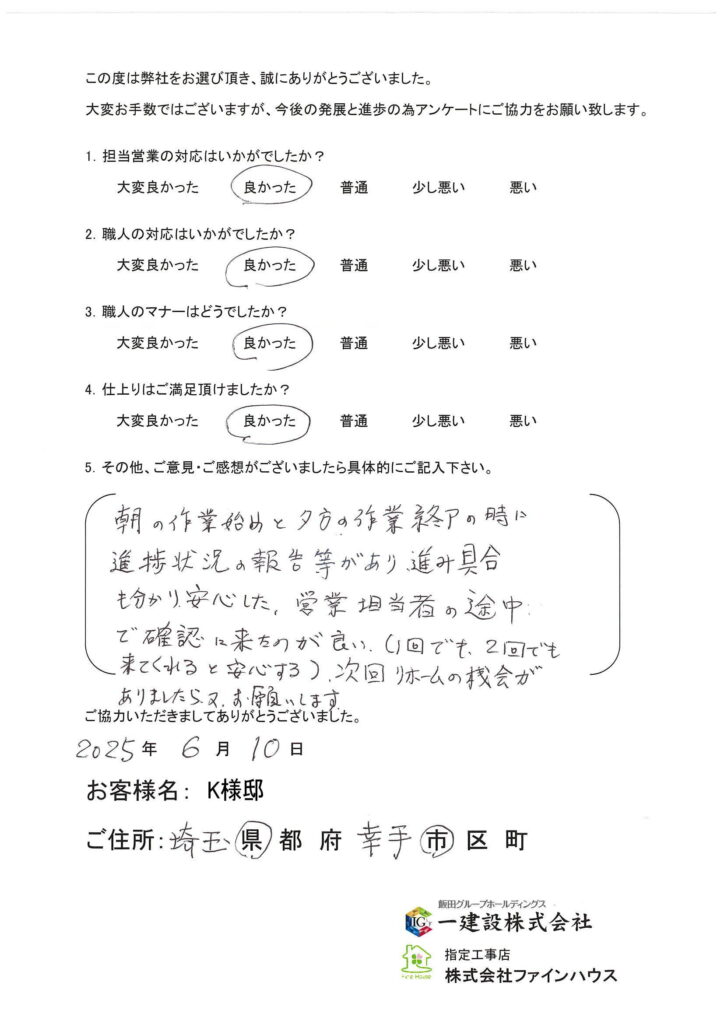 この度は弊社をお選び頂き、誠にありがとうございました。
大変お手数ではございますが、今後の発展と進歩の為アンケートにご協力をお願い致します。
1. 担当営業の対応はいかがでしたか？
大変良かった 良かった 普通 少し悪い 悪い
2. 職人の対応はいかがでしたか？
大変良かった 良かった 普通 少し悪い 悪い
3. 職人のマナーはどうでしたか？
大変良かった 良かった 普通 少し悪い 悪い
4. 仕上りはご満足頂けましたか？
大変良かった 良かった 普通 少し悪い 悪い
5. その他、ご意見・ご感想がございましたら具体的にご記入下さい。
朝の作業始めと夕方の作業終了の時に
進捗状況の報告等があり、進み具合
も分かり、安心した。営業担当者の途中
で確認に来たのが良い、（1回でも、2回でも
来てくれると安心する）、次回リホームの機会が
ありましたら又、お願いします
ご協力いただきましてありがとうございました。
2025年 6月 10日
お客様名： K様邸
ご住所：埼玉 県 都 府 幸手 市 区 町
飯田グループホールディングス
IG
一建設株式会社
指定工事店
Fine House
株式会社ファインハウス